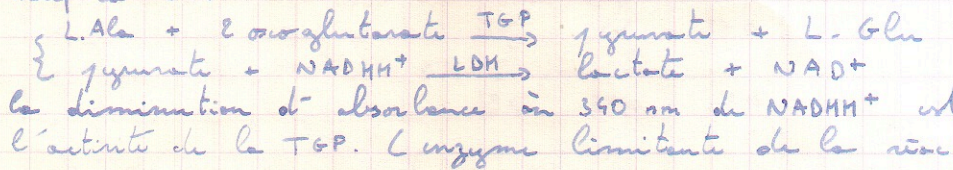 { L.Ala + 2 oxoglutarate TGP→ pyruvate + L-Glu
{ pyruvate + NADHH+ LDH→ lactate + NAD+
la diminution d' absorbance à 340 nm de NADHH+ est
l'activité de la TGP. (enzyme limitante de la réac